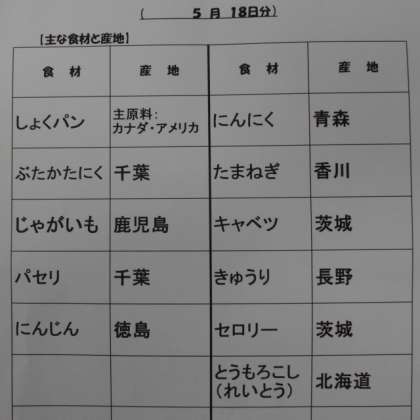 ( 5 月 18日分)
【主な食材と産地】
食 材 産 地 食 材 産 地
しょくパン 主原料: カナダ・アメリカ にんにく 青森
ぶたかたにく 千葉 たまねぎ 香川
じゃがいも 鹿児島 キャベツ 茨城
パセリ 千葉 きゅうり 長野
にんじん 徳島 セロリー 茨城
とうもろこし
(れいとう) 北海道